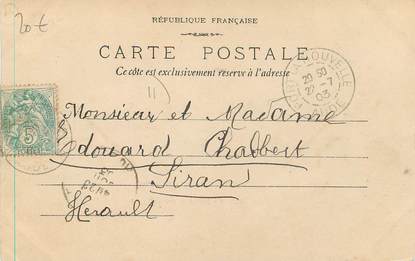 20 €
RÉPUBLIQUE FRANÇAISE
CARTE POSTALE
Ce côté est exclusivement réservé à l'adresse
LA NOUVELLE
20 50
27 -7
03
AUDE
11
Monsieur et Madame
Edouard Chabbert
Siran
Hérault
5